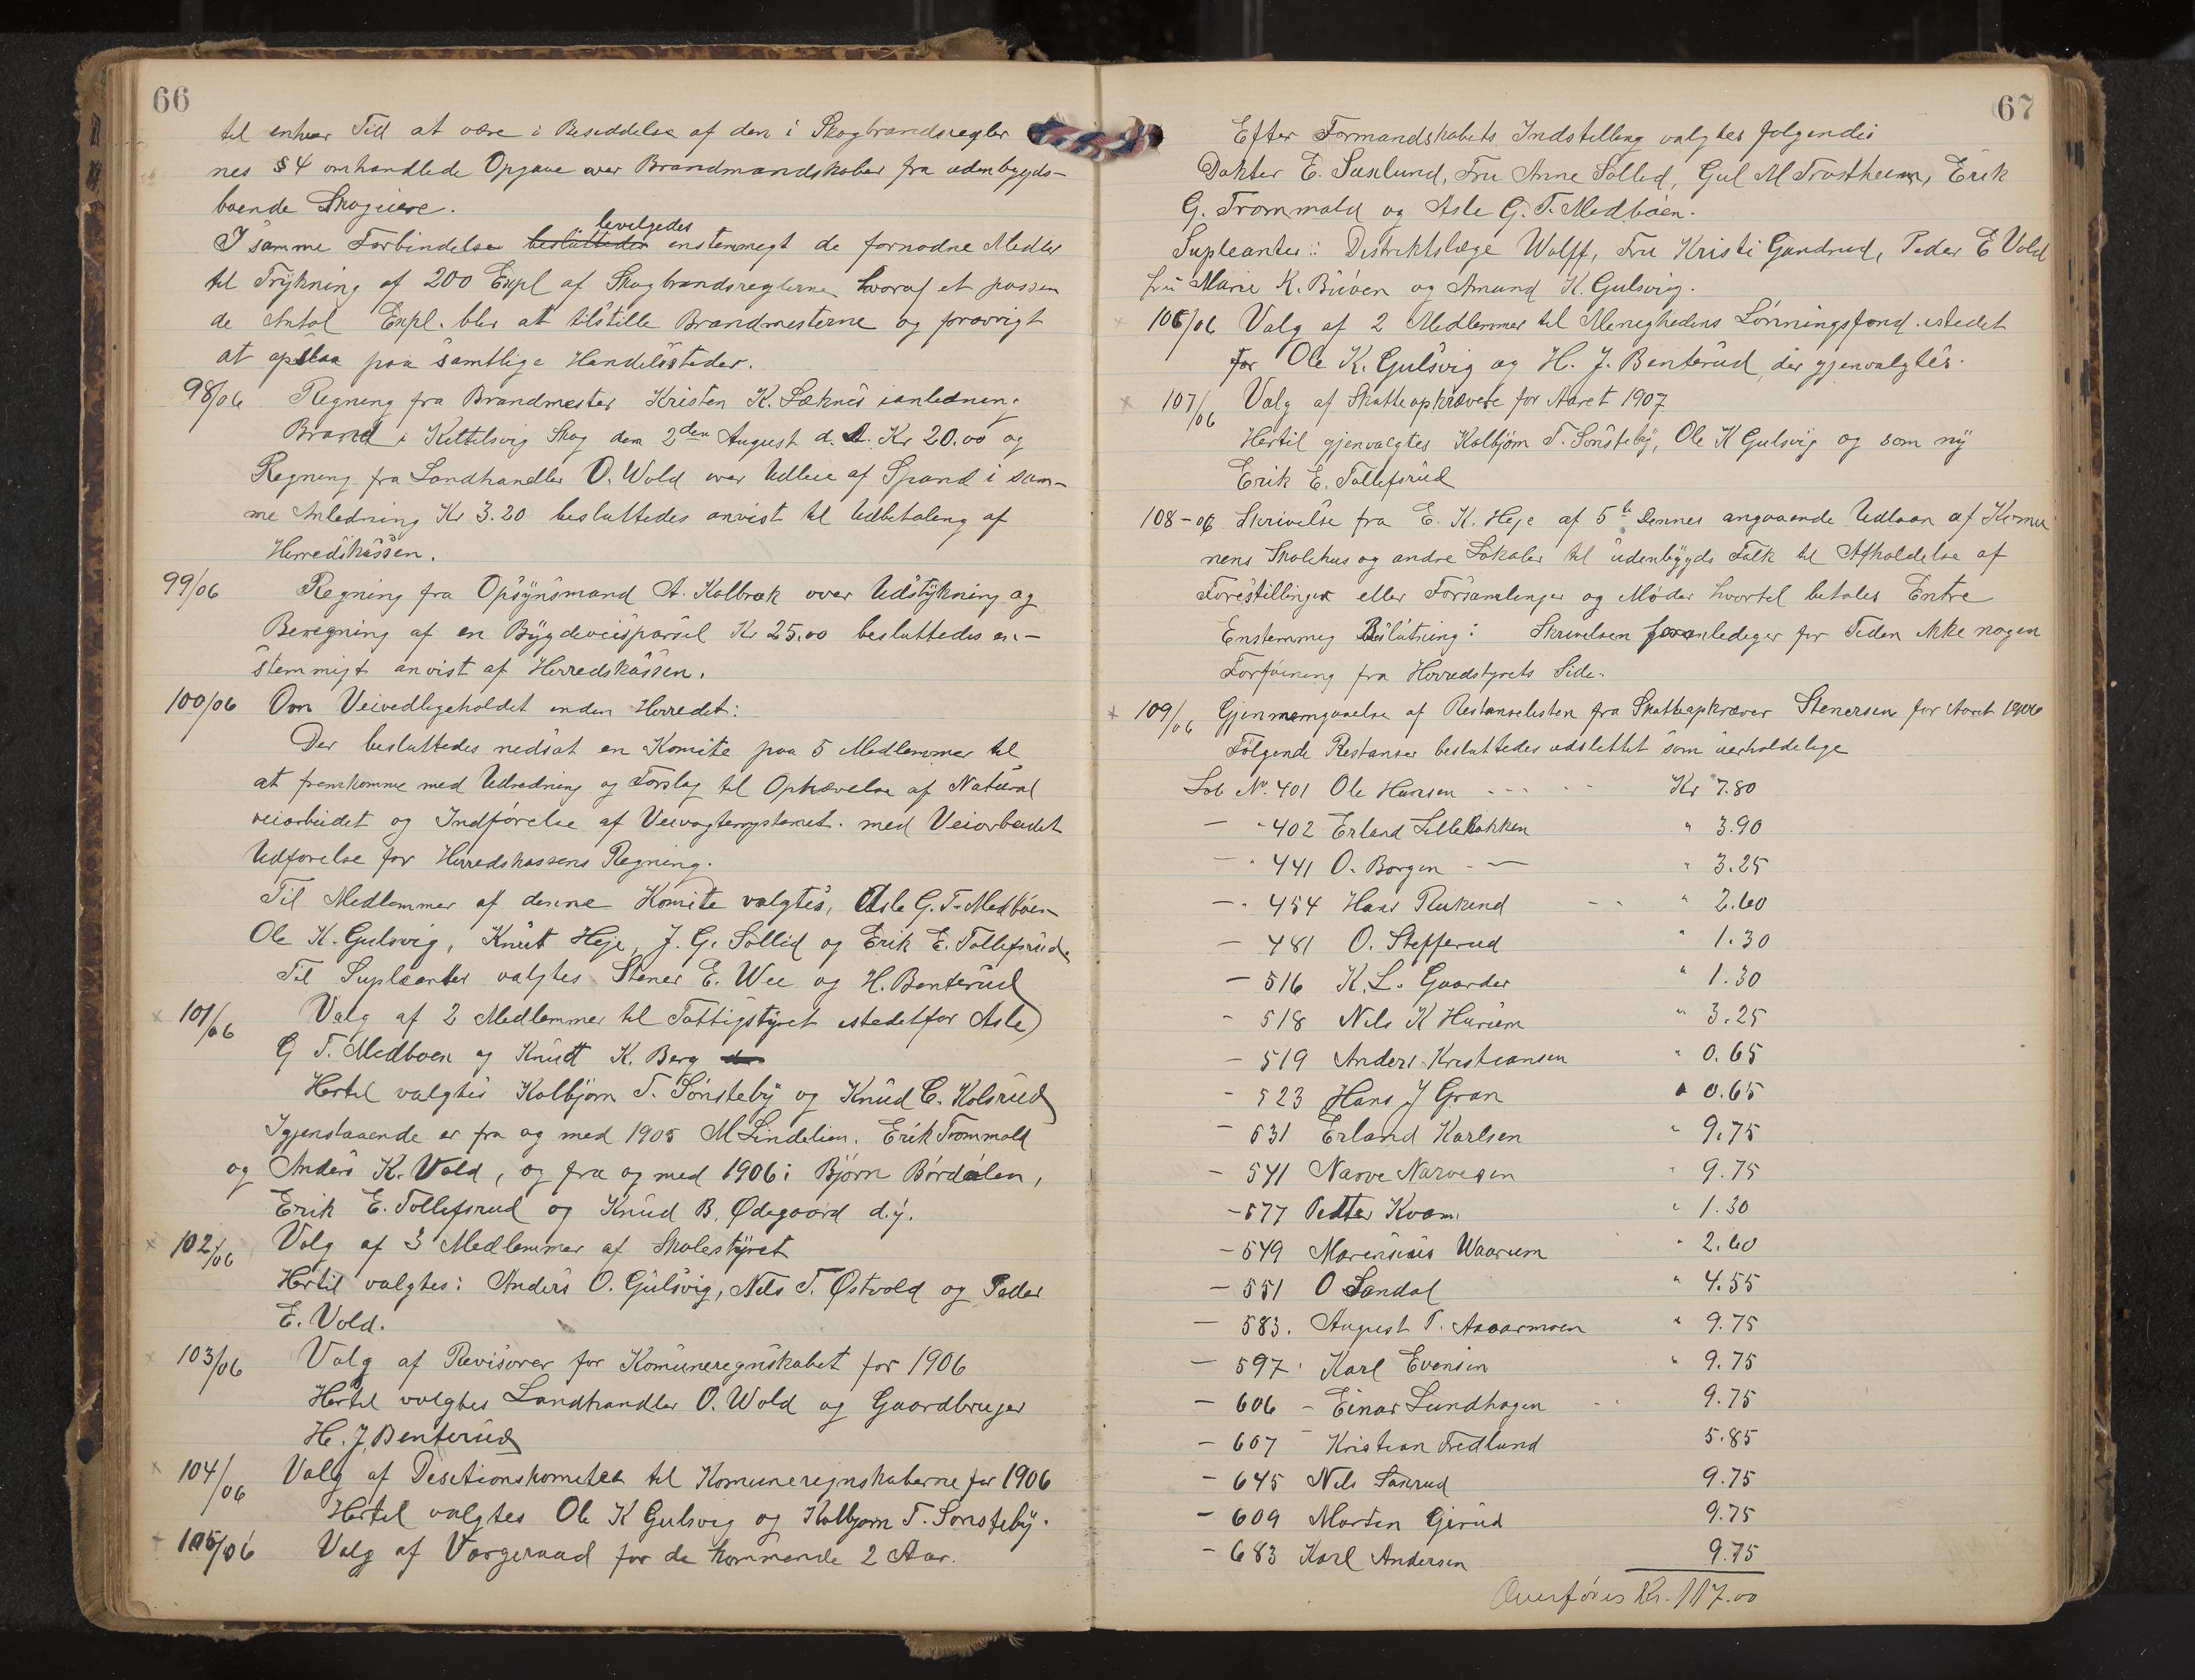 66
til enhver Tid at være i Besiddelse af den i Skogbrandsregler
nes § 4 omhandlede Opgave over Brandmandskaber fra udenbygds-
boende Skogeiere.
I samme Forbindelse besluttedes bevilgedes enstemmigt de fornødne Midler
til Trykning af 200 Expl af Skogbrandsreglerne hvoraf et passen
de Antal Expl. blev at tilstille Brandmesterne og forøvrigt
at opslaa paa samtlige Handelssteder.
98/06 Regning fra Brandmester Kristen K. Sæknes ianledning
Brand i Kittilsvig Skog den 2den August d. A. Kr 20.00 og
Regning fra Landhandler O. Wold over Udleie af Spand i sam-
me Anledning Kr 3.20 besluttedes anvist til Udbetaling af
Herredskassen.
99/06 Regning fra Opsynsmand A. Kolbræk over Udstykning og
Beregning af en Bygdeveisparsel Kr 25.00 besluttedes en-
stemmigt anvist af Herredskassen.
100/06 Om Veivedligeholdet inden Herredet:
Der besluttedes nedsat en Komite paa 5 Medlemmer til
at fremkomme med Udredning og Forslag til Ophævelse af Natural
veiarbeidet og Indførelse af Veivogtersystemet. med Veiarbeidet
Udførelse for Herredskassens Regning.
Til Medlemmer af denne Komite valgtes, Asle G. T. Medbøen
Ole K. Gulsvig, Knut Heje, J. G. Sollid og Erik E. Tollefsrud.
Til Supleanter valgtes Stener E. Wee og H. Benterud
101/06 Valg af 2 Medlemmer til Fattigstyret istedetfor Asle
G T. Medboen og Knudt K. Berg
Hertil valgtes Kolbjørn T. Sønsteby og Knud C. Kolsrud
Igjenstaaende er fra og med 1905 M Lindelien. Erik Trommald
og Anders K. Vold, og fra og med 1906: Bjørn Bórdalen,
Erik E. Tollefsrud og Knud B. Ødegaard d.y.
102/06 Valg af 3 Medlemmer af Skolestyret
Hertil valgtes: Anders O. Gulsvig, Nils T. Østvold og Peder
E. Vold.
103/06 Valg af Revisorer for Komuneregnskabet for 1906
Hertil valgtes Landhandler O. Wold og Gaardbruger
H. J. Benterud
104/06 Valg af Desitionskomiteen til Komuneregnskaberne for 1906
Hertil valgtes Ole K Gulsvig og Kolbjørn T. Sonsteby.
105/06 Valg af Vargeraad for de kommende 2 Aar.
67
Efter Formandskabets Indstilling valgtes følgende:
Doktor E. Saxlund, Fru Anne Sollid, Gul M Trostheim, Erik
G. Trommald og Asle G. T. Medbøen.
Supleanter: Distriktslæge Wolff, Fru Kristi Gandrud, Peder E Vold
fru Marie K. Búóen og Amund K. Gulsvig.
106/06 Valg af 2 Medlemmer til Menighedens Lønningsfond istedet
for Ole K. Gulsvig og H. J. Benterud, der gjenvalgtes.
107/06 Valg af Skatteopkrævere for Aaret 1907
Hertil gjenvalgtes Kolbjørn T. Sønsteby, Ole K Gulsvig og som ny
Erik E. Tollefsrud
108-06 Skrivelse fra E. K. Heje af 5te Dennes angaaende Udlaan af Komu
nens Skolehus og andre Lokaler til udenbygds Folk til Afholdelse af
Forestillinger eller Forsamlinger og Møder hvortil betales Entre
Enstemmig Bslutning: Skrivelsen foranlediger for Tiden ikke nogen
Forføining fra Herredstyrets Side.
109/06 Gjennemgaaelse af Restanselisten fra Skatteopkræver Stenersen for Aaret 1906
Følgende Restanser besluttedes udslettet som uerholdelige
Lob No. 401 Ole Hansen - - - - - Kr 7.80
— " 402 Erland Lillebakken " 3.90
— " 441 O. Borgen - — " 3.25
— " 454 Hans Rukend - - " 2.60
— 481 O. Stefferud " 1.30
— 516 K. L. Gaarder " 1.30
- 518 Nils K Hurum " 3.25
— 519 Anders Kristiansen " 0.65
- 523 Hans J Gran " 0.65
- 531 Erland Karlsen " 9.75
- 541 Narve Narvesen " 9.75
- 577 Petter Kvam " 1.30
- 549 Marensius Waarum " 2.60
- 551 O Sandal " 4.55
— 583. August T. " 9.75
— 597 Karl Evensen " 9.75
— 606 - Einar Lundhagen - - 9.75
— 607 Kristian Fredlund 5.85
- 645 Nils 9.75
- 609 Morten Gjerud 9.75
- 683 Karl Andersen 9.75
Overføres Kr. 117.00